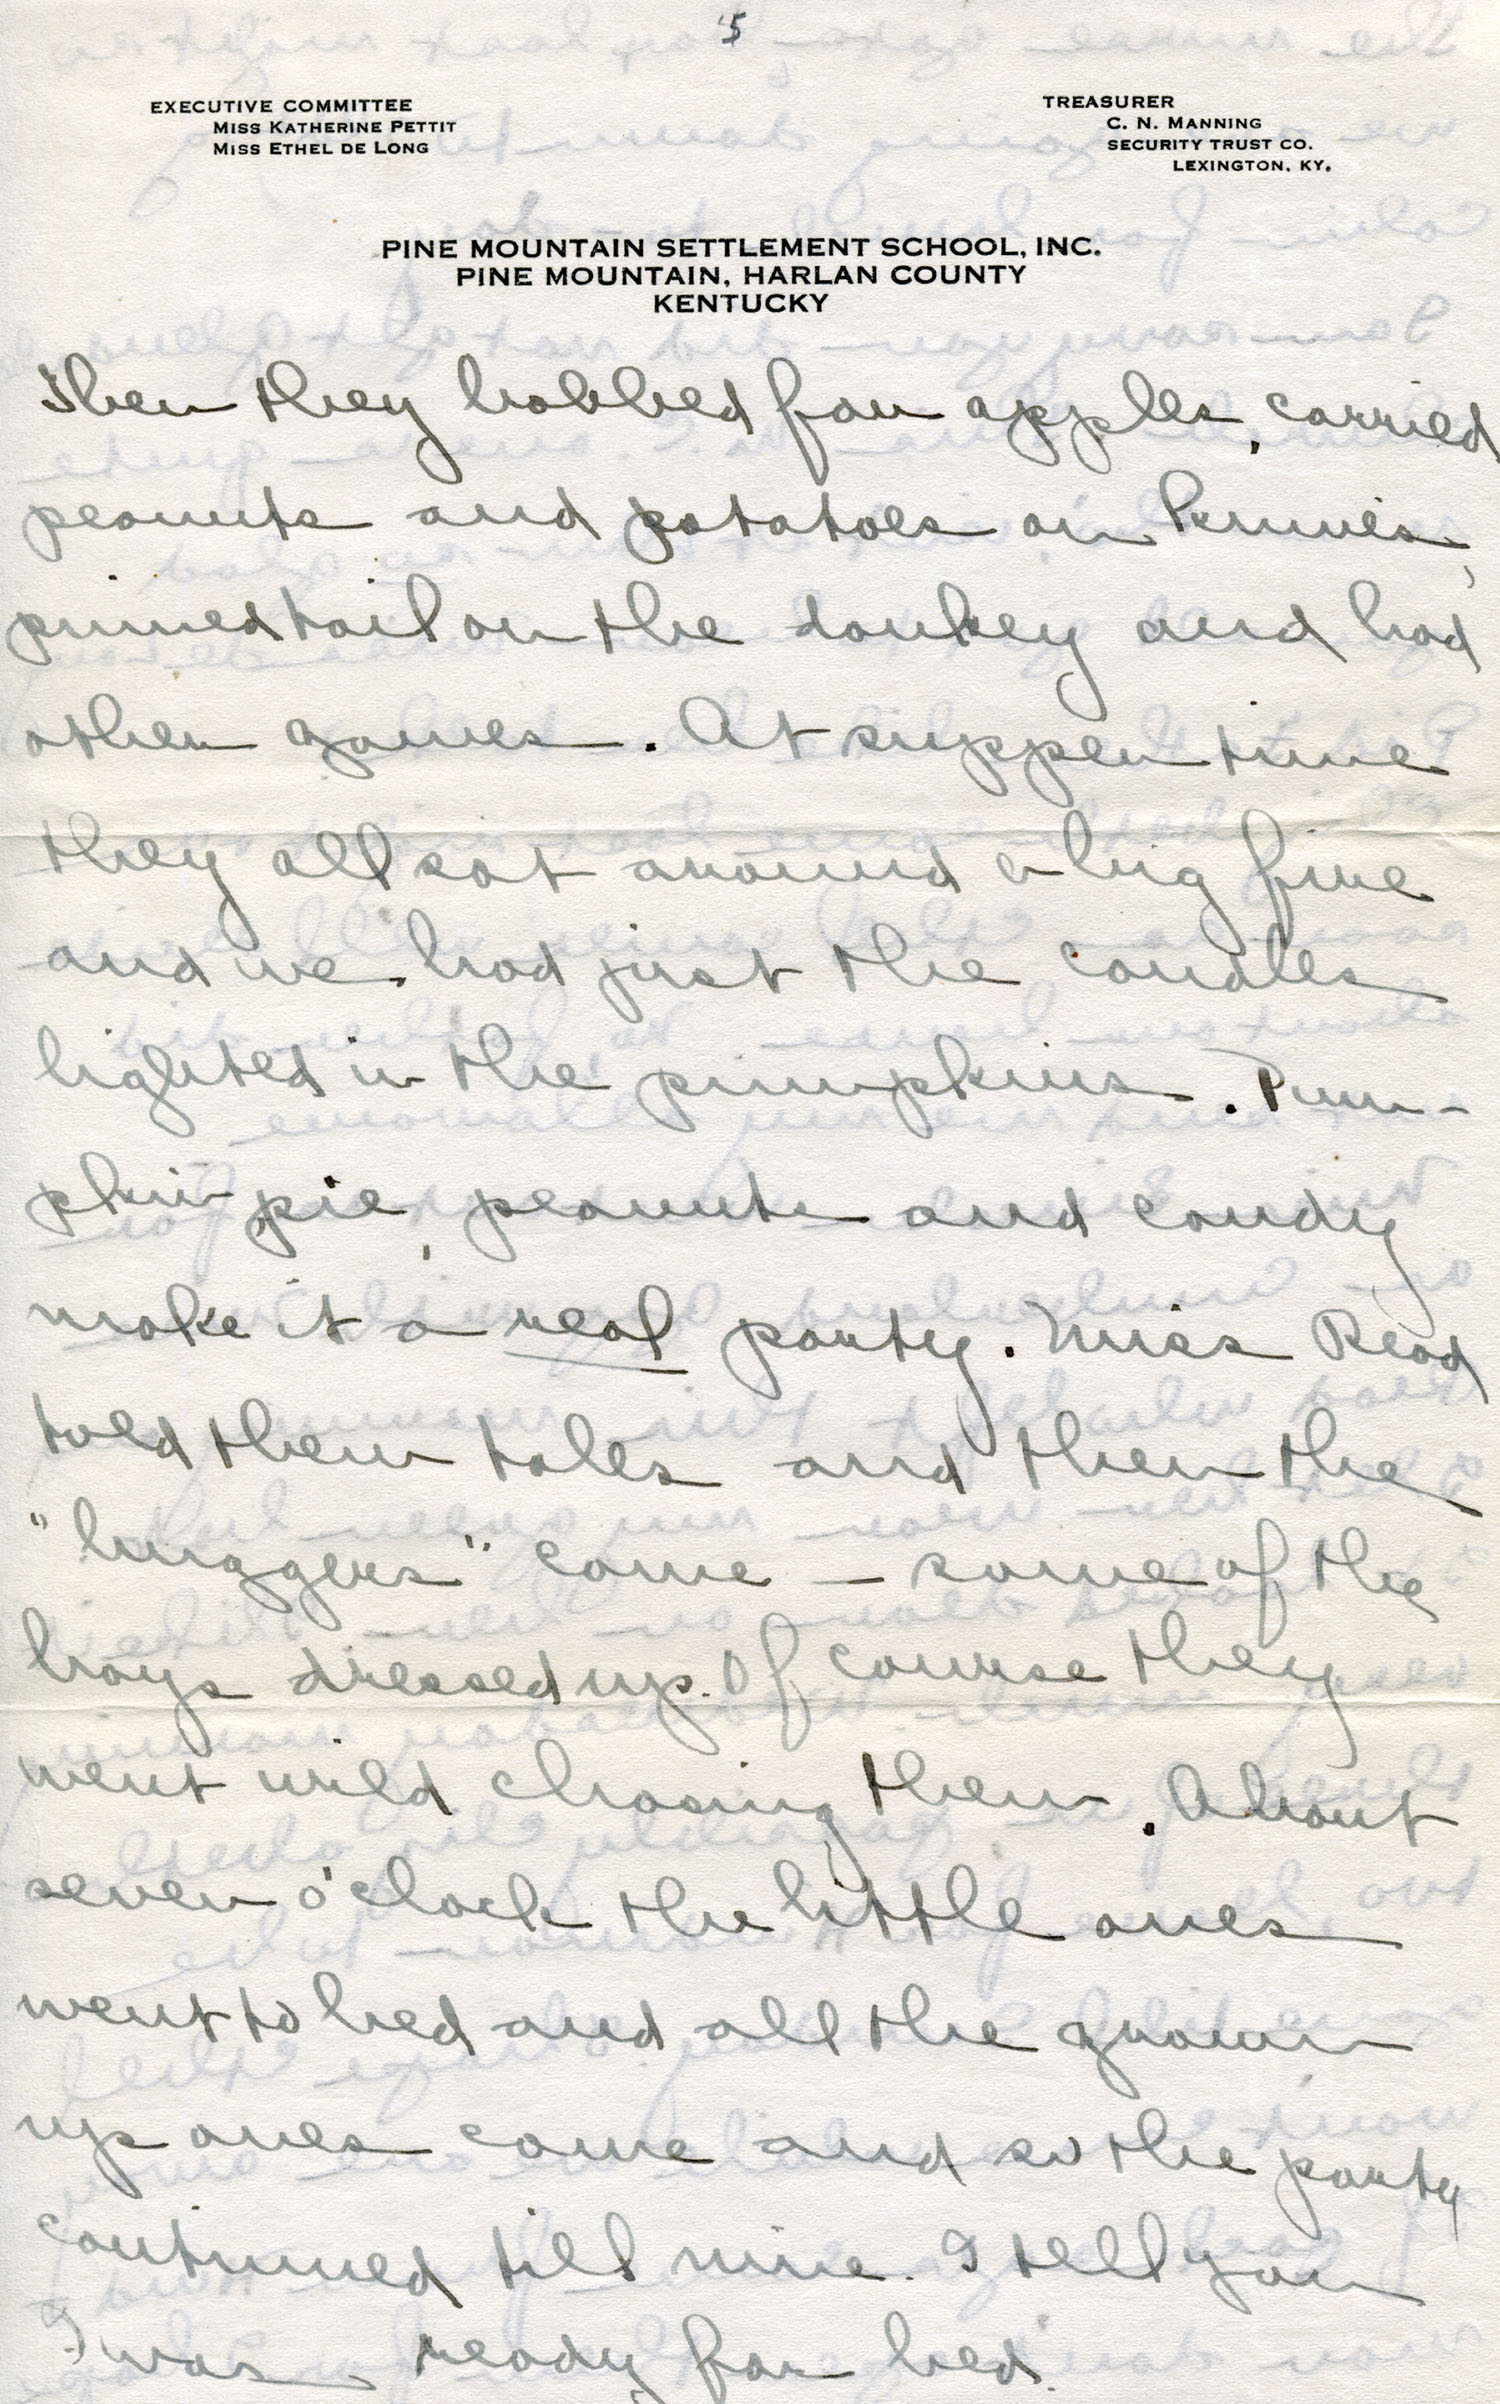 5
EXECUTIVE COMMITTEE
MISS KATHERINE PETTIT
MISS ETHEL DE LONG
TREASURER
C. N. MANNING
SECURITY TRUST CO.
LEXINGTON, KY.
PINE MOUNTAIN SETTLEMENT SCHOOL, INC.
PINE MOUNTAIN, HARLAN COUNTY
KENTUCKY
Then they bobbed for apples, carried
peanuts and potatoes on knives,
pinned tail on the donkey and had
other games. At supper time
they all sat around a big fire
and we had just the candles
lighted in the pumpkins. Pum-
pkin pie, peanuts and candy
make it a real party. Miss Read
told them tales and then the
"buggers" came – some of the
boys dressed up. Of course they
went wild chasing them. About
seven o'clock the little ones
went to bed and all the grown
ups ones came and so the party
continued till nine. I tell you
I was ready for bed.